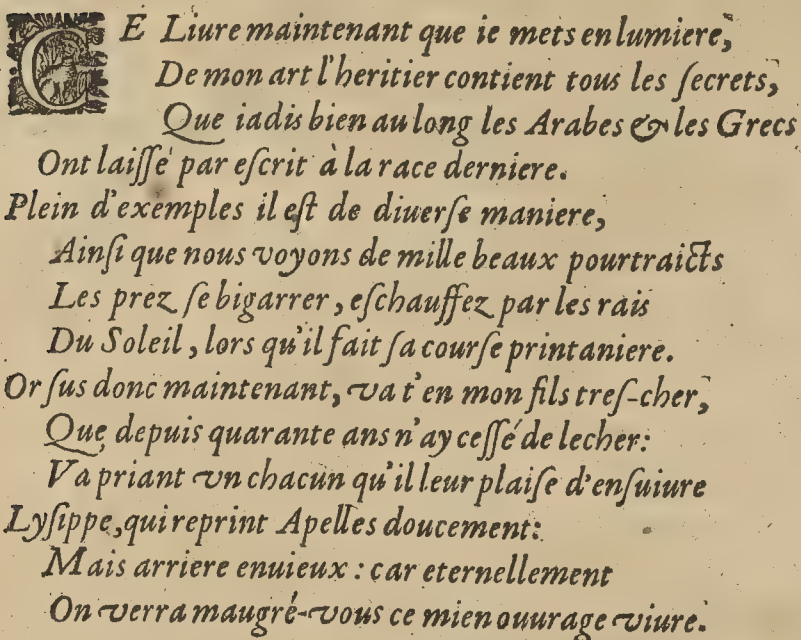 CE Liure maintenant que ie mets en lumiere,
De mon art l'heritier contient tous les ſecrets,
Que iadis bien au long les Arabes & les Grecs
Ont laiſſé par eſcrit à la race derniere.
Plein d'exemples il eſt de diuerſe maniere,
Ainſi que nous voyons de mille beaux pourtraicts
Les prez ſe bigarrer, eſchauffez par les rais
Du Soleil, lors qu'il fait ſa courſe printaniere.
Or ſus donc maintenant, va t'en mon fils treſ-cher,
Que depuis quarante ans n'ay ceſſé de lecher:
Va priant vn chacun qu'il leur plaiſe d'enſuiure
Lyſippe, qui reprint Apelles doucement:
Mais arriere enuieux : car eternellement
On verra maugré-vous ce mien ouurage viure.